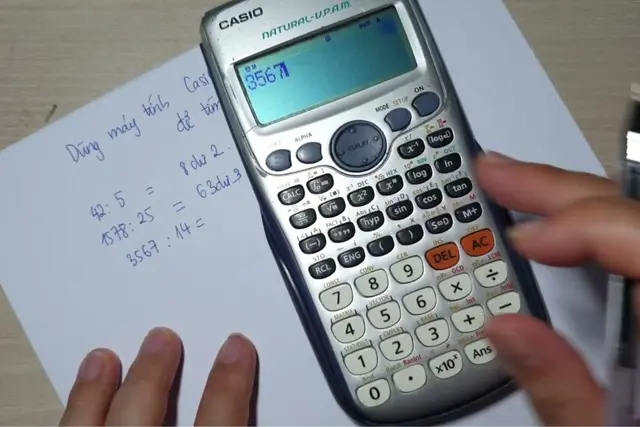 CASIO
NATURAL-V.P.A.M.
3567
Dùng máy tính Casi
để tìm
42 : 5 = 8 dư 2
1578 : 25 = 63 dư 3
3567 : 14 =
ALPHA
MODE SETUP
ON
REPLAY
CALC
x⁻¹
log
ln
(-)
hyp
sin
cos
tan
RCL
ENG
(
)
S⇔D
M+
7
8
9
DEL
AC
4
5
6
×
÷
1
2
3
+
−
0
.
×10ˣ
Ans